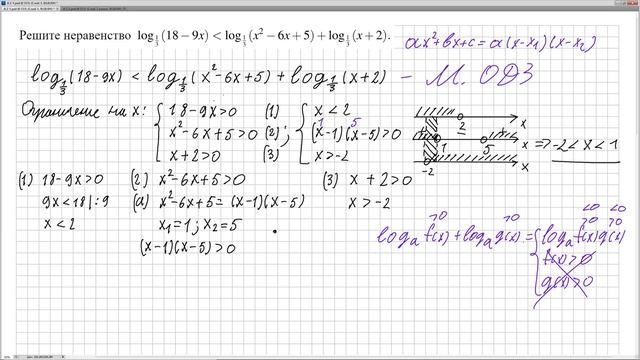 Решите неравенство log_{1/3}(18 − 9x) < log_{1/3}(x² − 6x + 5) + log_{1/3}(x + 2).
ax²+bx+c = a(x-x₁)(x-x₂)
log_{1/3}(18-9x) < log_{1/3}(x²-6x+5) + log_{1/3}(x+2) – М. ОДЗ
Ограничение на x: { 18-9x>0 (1)
x²-6x+5>0 (2);
x+2>0 (3)
{ x<2
1 5
(x-1)(x-5)>0
x>-2
2 x
1 5 x
-2 x
=> -2<x<1
(1) 18-9x>0
9x<18 |:9
x<2
(2) x²-6x+5>0
(a) x²-6x+5 = (x-1)(x-5)
x₁=1; x₂=5
(x-1)(x-5)>0
(3) x+2>0
x>-2
>0 >0 <0 <0
>0 >0
logₐf(x) + logₐg(x) = { logₐf(x)g(x)
f(x)>0
g(x)>0